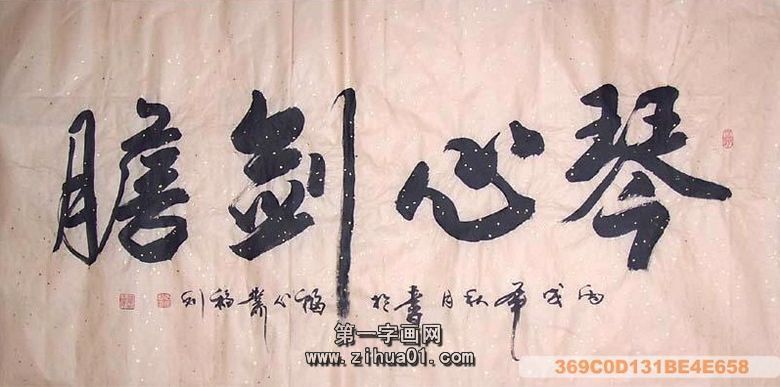 琴心剑胆
丙戌年秋月書於福公斋福刘
第一字画网
www.zihua01.com
369C0D131BE4E658